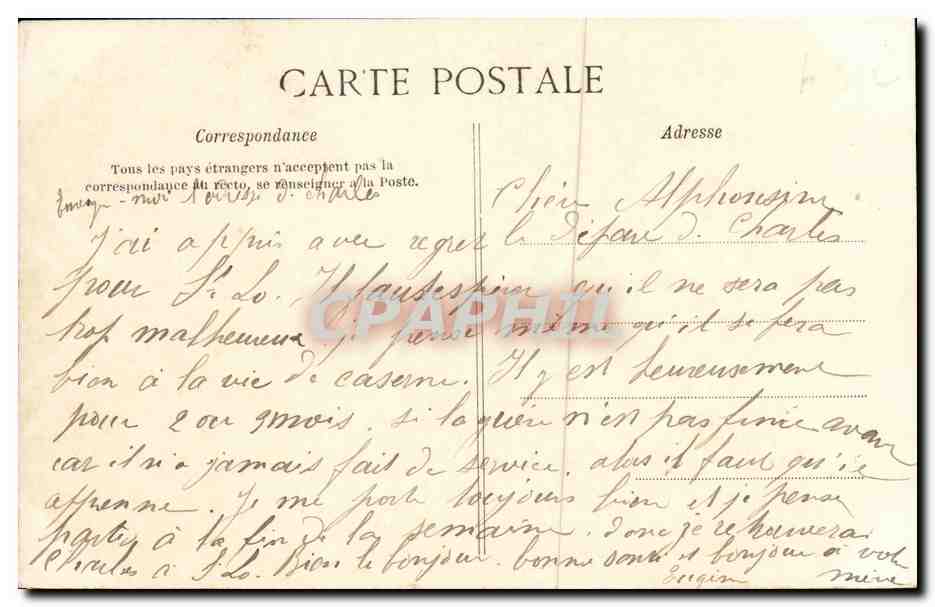 CARTE POSTALE
Correspondance
Adresse
Tous les pays étrangers n'acceptent pas la
correspondance au recto, se renseigner à la Poste.
Envoye-moi l'adresse d. Charles
Chère Alphonsine
J'ai appris avec regret le départ d. Charles
pour St Lo. Il faut espérer qu'il ne sera pas
trop malheureux je pense même qu'il se fera
bien à la vie de caserne. Il y est heureusement
pour 2 ou 3 mois. si la guerre n'est pas finie avant
car il n'a jamais fait de service. alors il faut qu'il
apprenne. Je me porte toujours bien et je pense
partir à la fin de la semaine. donc je retrouverai
Charles à St Lo. Bien le bonjour. bonne santé et bonjour à votre
mère
Eugène
CPAPHIL